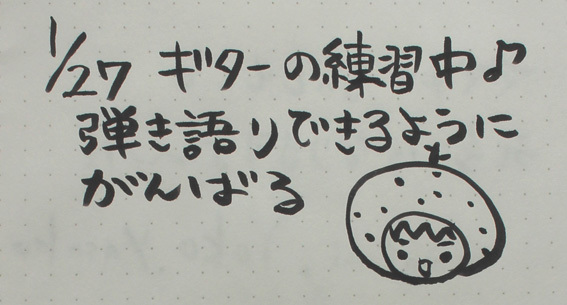 1/27 ギターの練習中♪
弾き語りできるように
がんばる